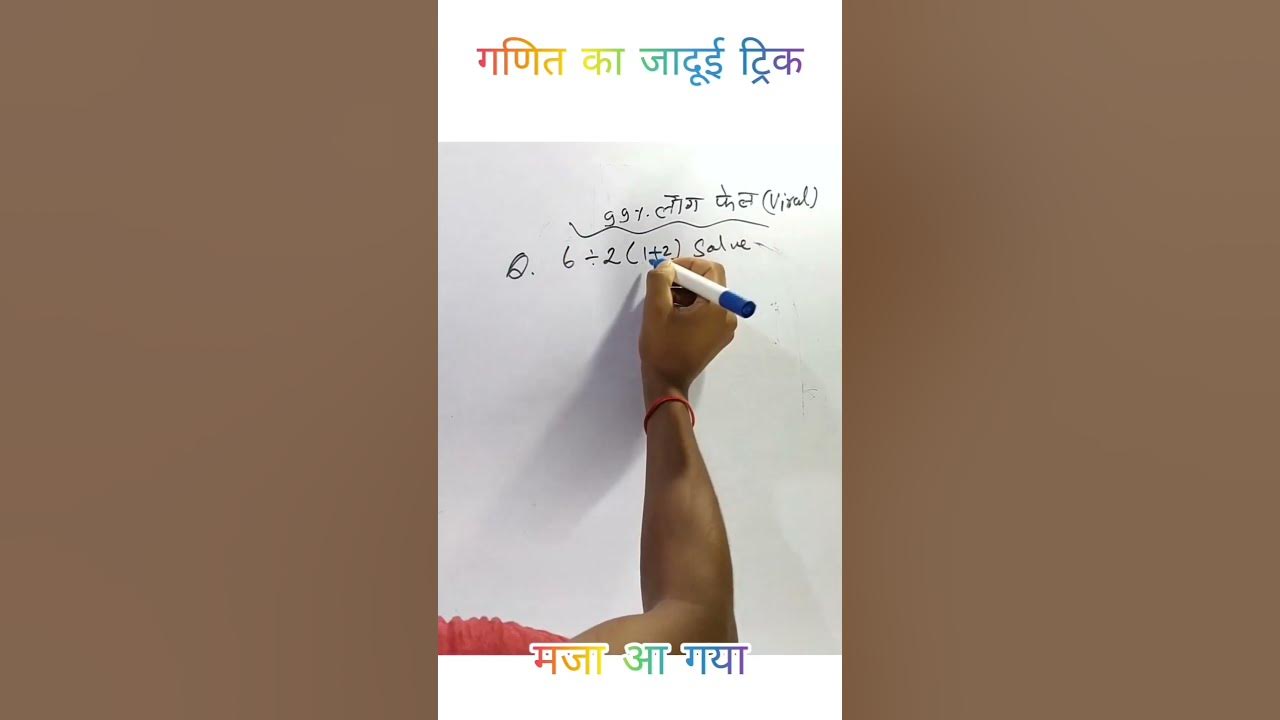 गणित का जादूई ट्रिक
99% लोग फेल (Viral)
Q. 6÷2(1+2) Solve
मजा आ गया